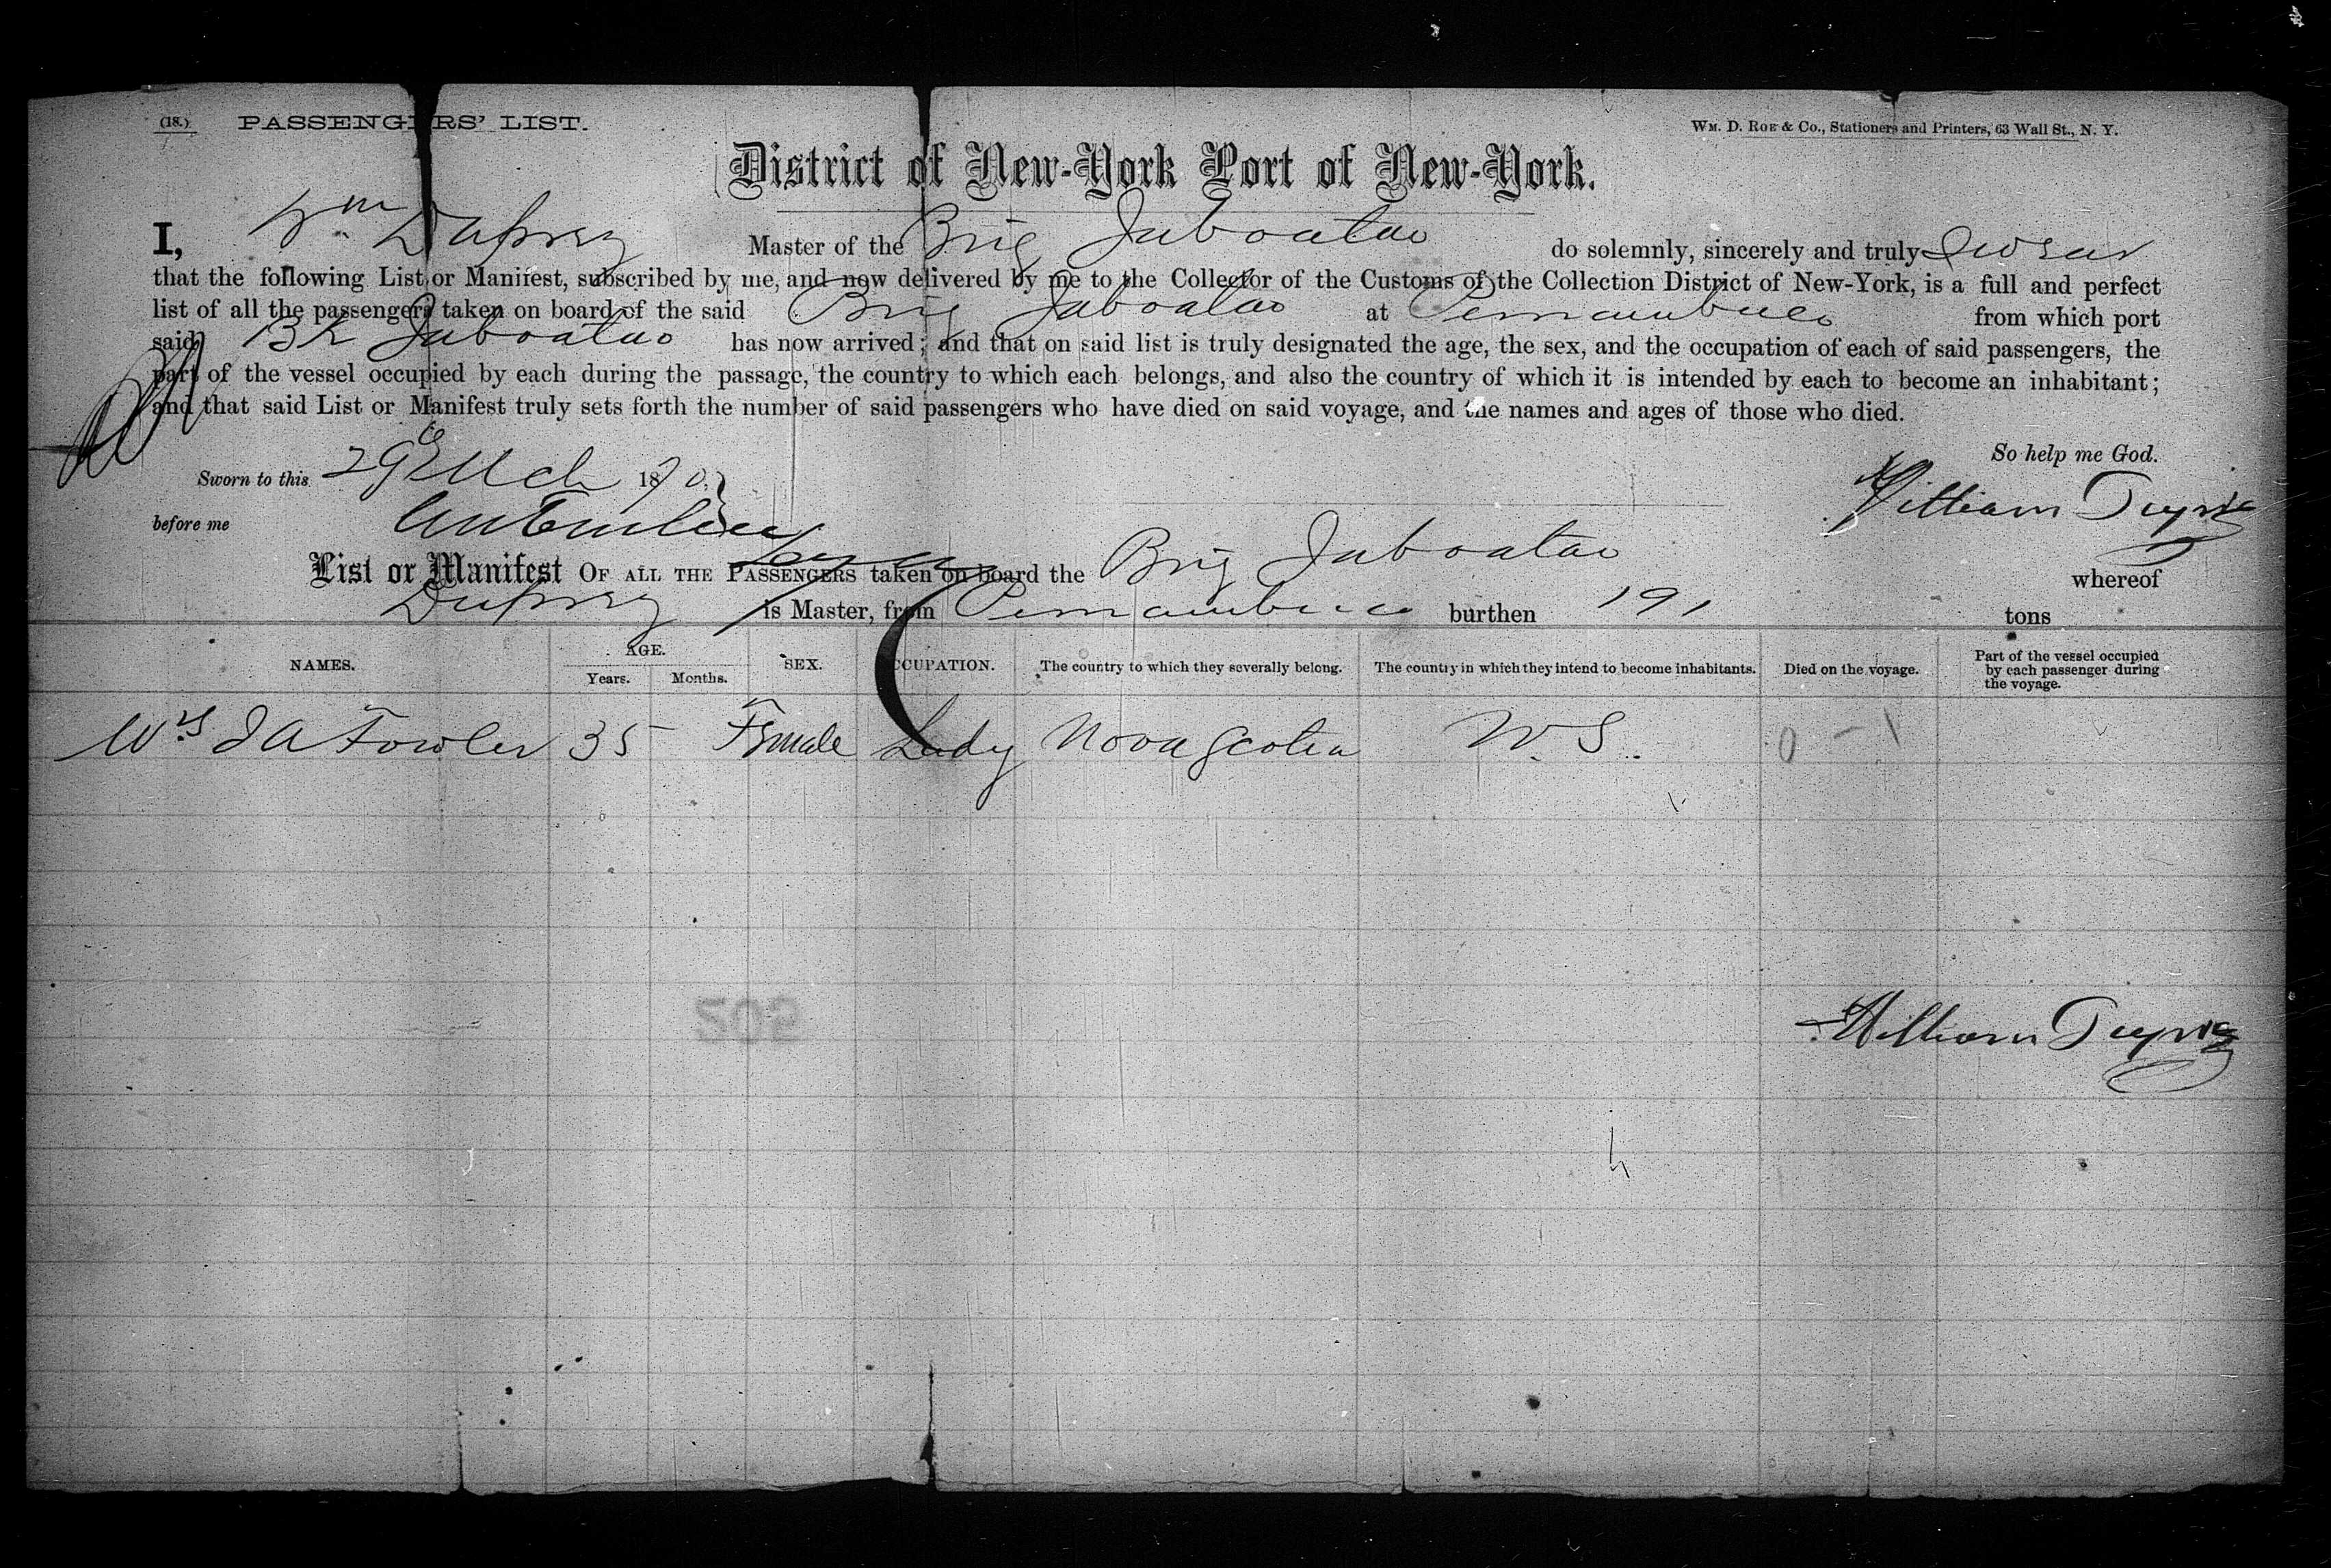 (18.) PASSENGERS' LIST.
WM. D. ROE & Co., Stationers and Printers, 63 Wall St., N. Y.
District of New-York Port of New-York.
I, Wm Duprey Master of the Brig Jaboatao do solemnly, sincerely and truly swear
that the following List or Manifest, subscribed by me, and now delivered by me to the Collector of the Customs of the Collection District of New-York, is a full and perfect
list of all the passengers taken on board of the said Brig Jaboatao at Pernambuco from which port
said Bk Jaboatao has now arrived; and that on said list is truly designated the age, the sex, and the occupation of each of said passengers, the
part of the vessel occupied by each during the passage, the country to which each belongs, and also the country of which it is intended by each to become an inhabitant;
and that said List or Manifest truly sets forth the number of said passengers who have died on said voyage, and the names and ages of those who died.
So help me God.
Sworn to this 29 Mch 1870.
William
before me
List or Manifest OF ALL THE PASSENGERS taken on board the Brig Jaboatao whereof
Duprey is Master, from Pernambuco burthen 191 tons
NAMES. AGE. Years. Months. SEX. OCCUPATION. The country to which they severally belong. The country in which they intend to become inhabitants. Died on the voyage. Part of the vessel occupied by each passenger during the voyage.
Mrs J A Fowler 35 Female Lady Nova Scotia 0 - 1
502
William